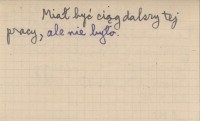 Miał być ciąg dalszy tej
pracy, ale nie było.